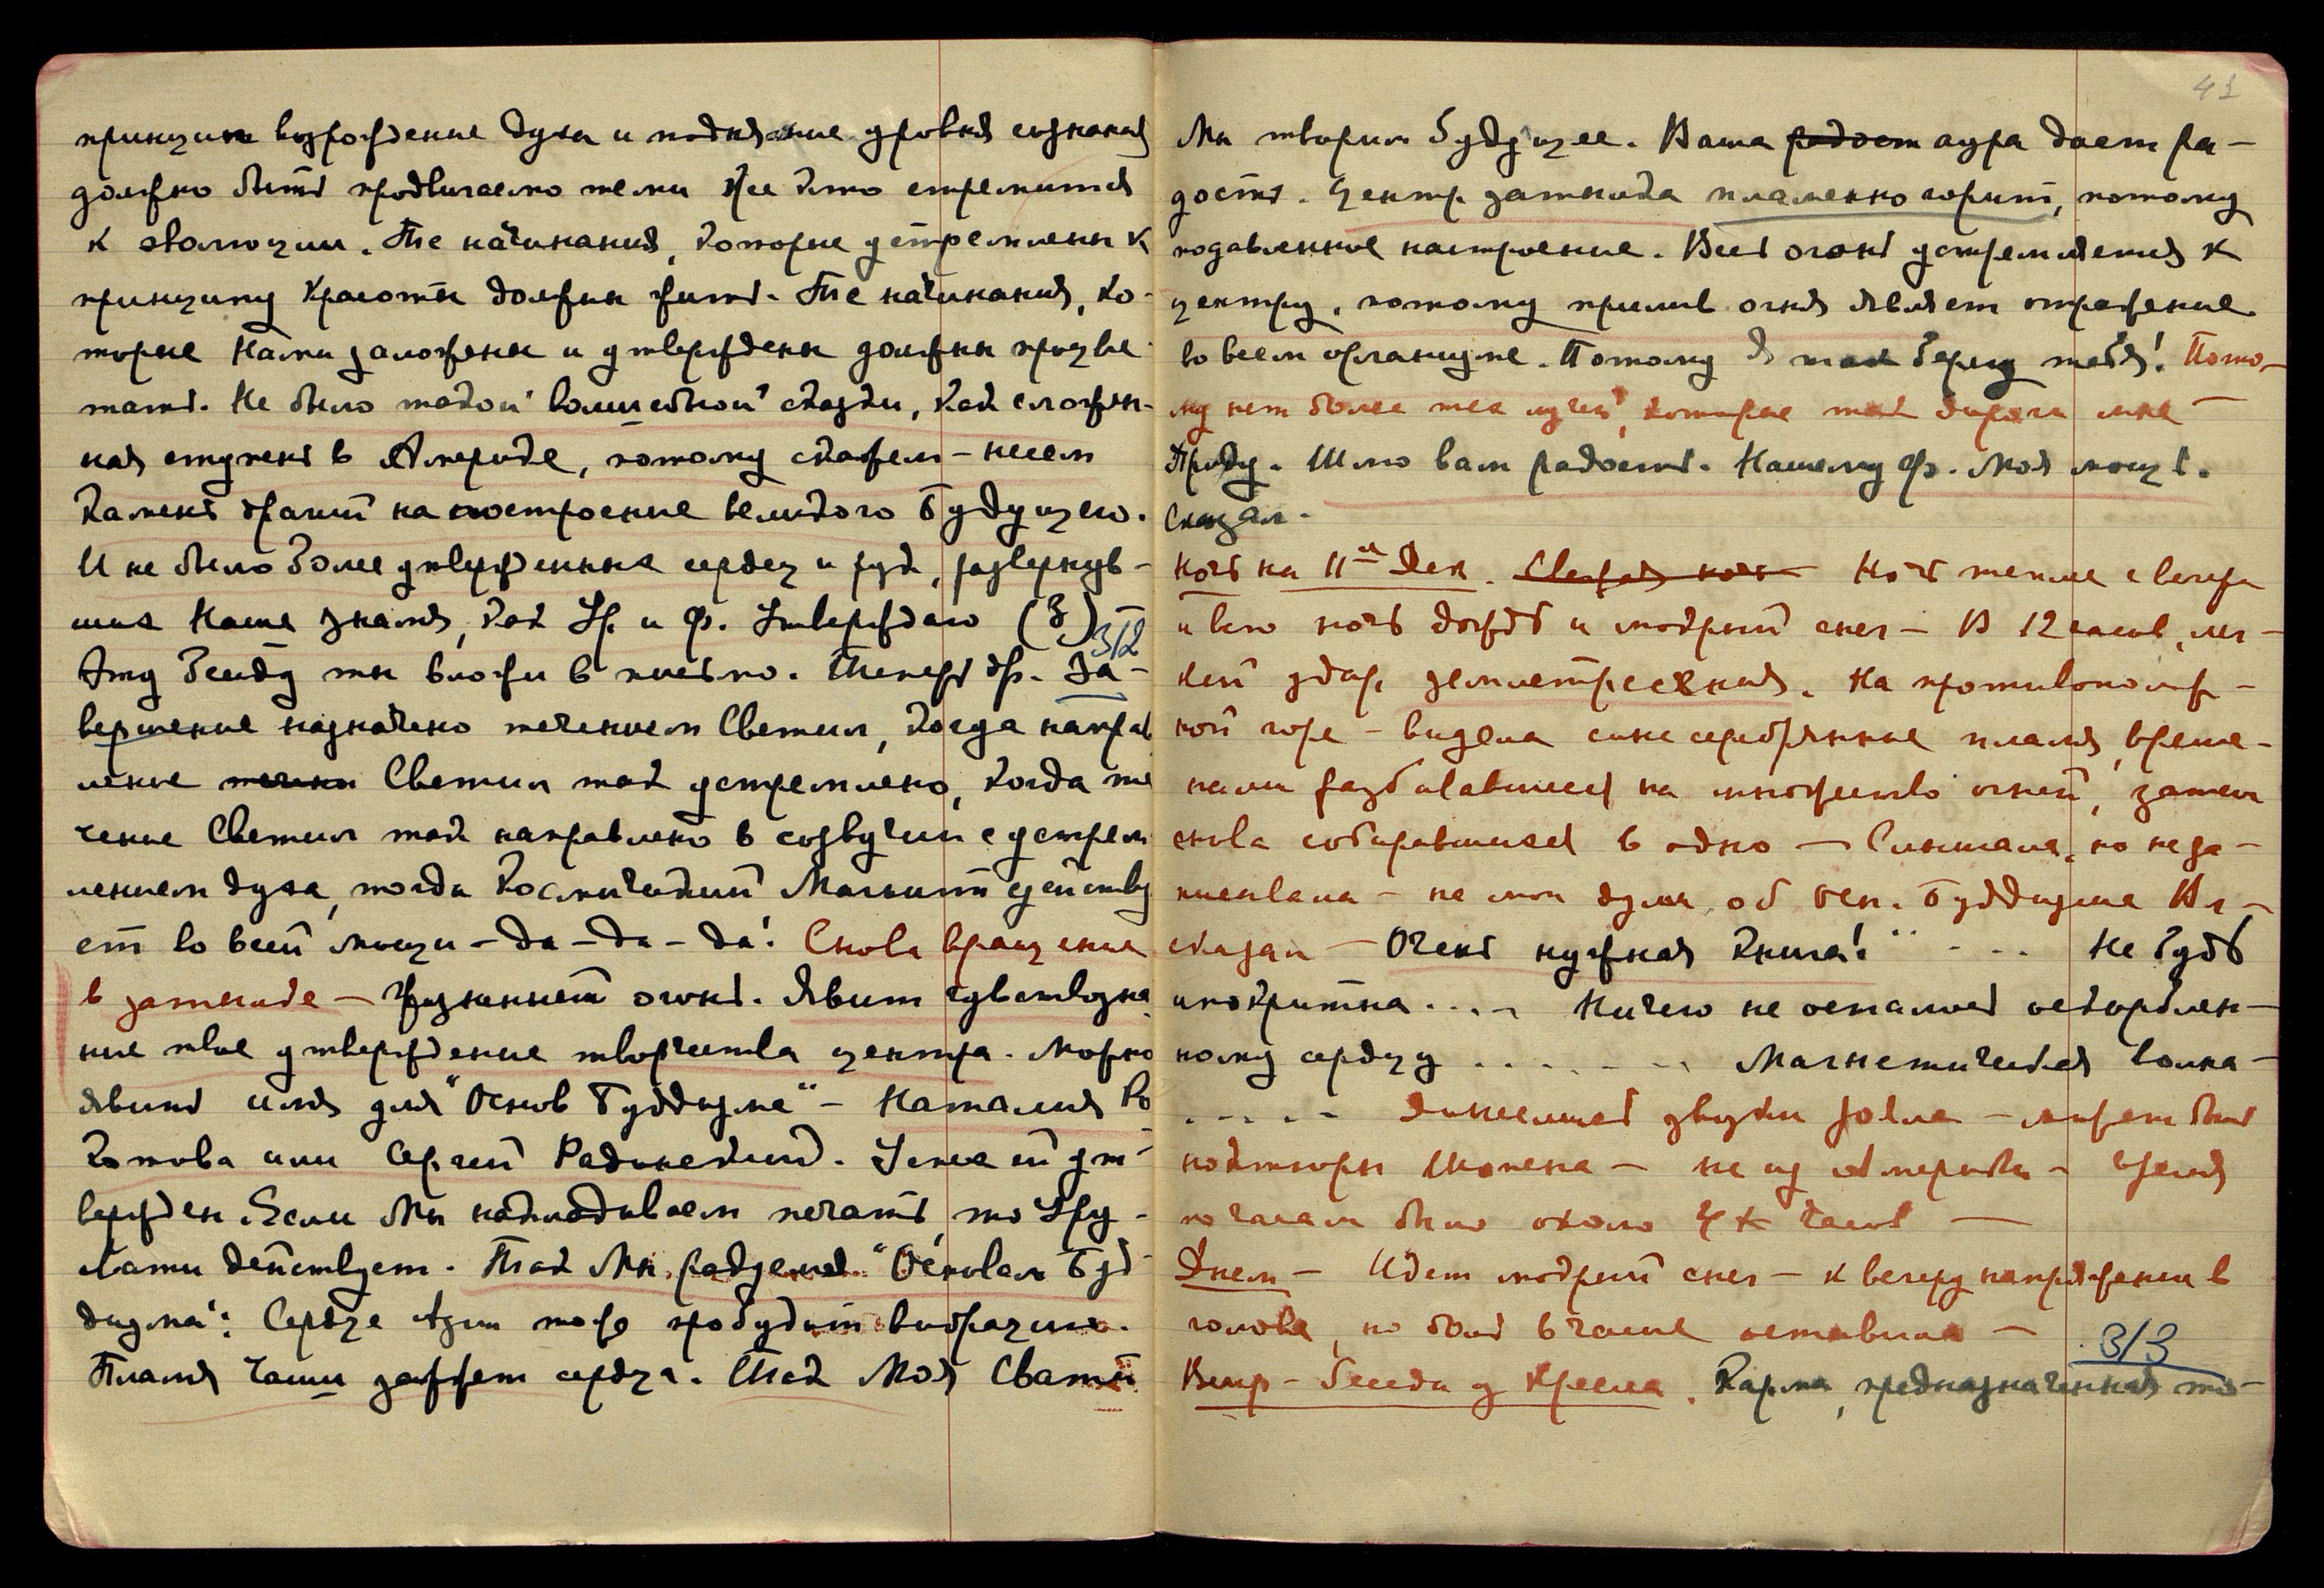 принцип возрождение духа и поднятие уровня сознания
должно быть продвигаемо теми кто стремится
к эволюции. Те начинания, которые устремлены к
принципу Красоты должны жить. Те начинания, ко-
торые Нами заложены и утверждены должны процве
тать. Не было такой волшебной сказки, как сложен-
ная ступень в Америке, потому скажем – несем
Камень драгий на построение великого Будущего.
И не было более утвержденных сердец и рук, развернув-
ших Наше знамя, как Ур. и Ф. Утверждаю (3) 3/2
Эту Беседу ты вложи в письмо. Теперь др. За-
вершение назначено течением Светил, когда направ
ление Светил так устремлено, когда те
чение Светил так направлено в созвучии с устрем
лением духа, тогда Космический Магнит действу
ет во всей мощи – да – да – да! Снова вращение
в затылке – жизненный огонь. Явит чувствозна
ние твое утверждение творчества центра. Можно
явить имя для "Основ Буддизма" – Наталия Ро
котова или Сергей Радонежский. Успех ей ут-
вержден. Если Мы накладываем печать, то Уру-
свати действует. Так Мы радуемся "Основам Буд-
дизма". Сердце Азии тоже пробудит вибрацию.
Пламя Чаши зажжет сердца. Так Моя Свати
41
Мы творим будущее. Ваша радост аура дает ра-
дость. Центр затылка пламенно горит, потому
подавленное настроение. Весь огонь устремляется к
центру, потому прилив огня являет отражение
во всем организме. Потому Я так берегу тебя! Пото-
му нет более тех лучей, которые так дороги мне –
Приду. Шлю вам радость. Нашему Ф. Моя мощь.
Сказал.
Ночь на 11ое Дек. Свежая ночь Ночь теплые с вечера
и всю ночь дождь и мокрый снег – В 12 часов, лег-
кий удар землетрясения. На противополож-
ной горе – видела сине серебрянные пламя, време-
нами разбивавшиеся на множество огней, затем
снова собиравшиеся в одно – Слышала, но не за-
писывала – на мои думы об Осн. Буддизма Вл –
сказал – Очень нужная Книга!" - - - Не будь
ипокритна . . . – Ничего не осталось оскорблен-
ному сердцу . . . . . . . Магнетическая волна –
. . . . – Доносились звуки рояля – может быть
ноктюрны Шопена – не из Америки – время
по часам было около 4х часов —
Днем – Идет мокрый снег – к вечеру напряжении в
голове, но боль в чаше оставила –
3/3
Вечер – беседа у Кресла. Карма, предназначенная то-